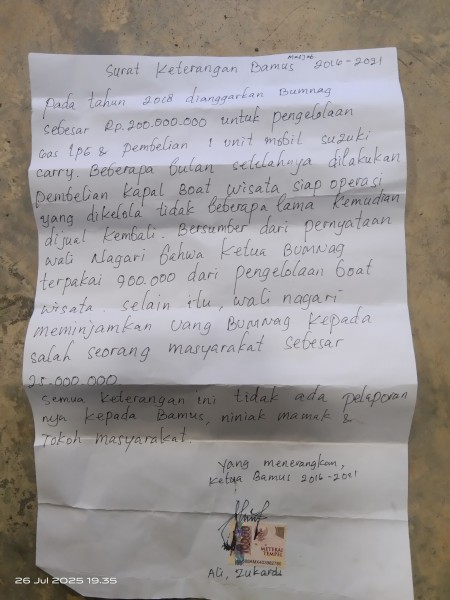 Surat Keterangan Bamus 2016-2021
Pada tahun 2018 dianggarkan Bumnag
sebesar Rp. 200.000.000 untuk pengelolaan
Gas LPG & pembelian 1 unit mobil suzuki
carry. Beberapa bulan setelahnya dilakukan
Pembelian Kapal Boat wisata siap operasi
yang dikelola tidak beberapa lama kemudian
dijual kembali. Bersumber dari pernyataan
wali Nagari bahwa Ketua BUMNAG
terpakai 900.000 dari pengelolaan boat
wisata. selain itu, wali nagari
meminjamkan uang BUMNAG kepada
salah seorang masyarakat sebesar
25.000.000.
semua keterangan ini tidak ada pelaporan
nya kepada Bamus, niniak mamak &
Tokoh masyarakat.
yang menerangkan,
Ketua Bamus 2016-2021
10000
METERAI
TEMPEL
Ali, Zukardi
26 Jul 2025 19.35